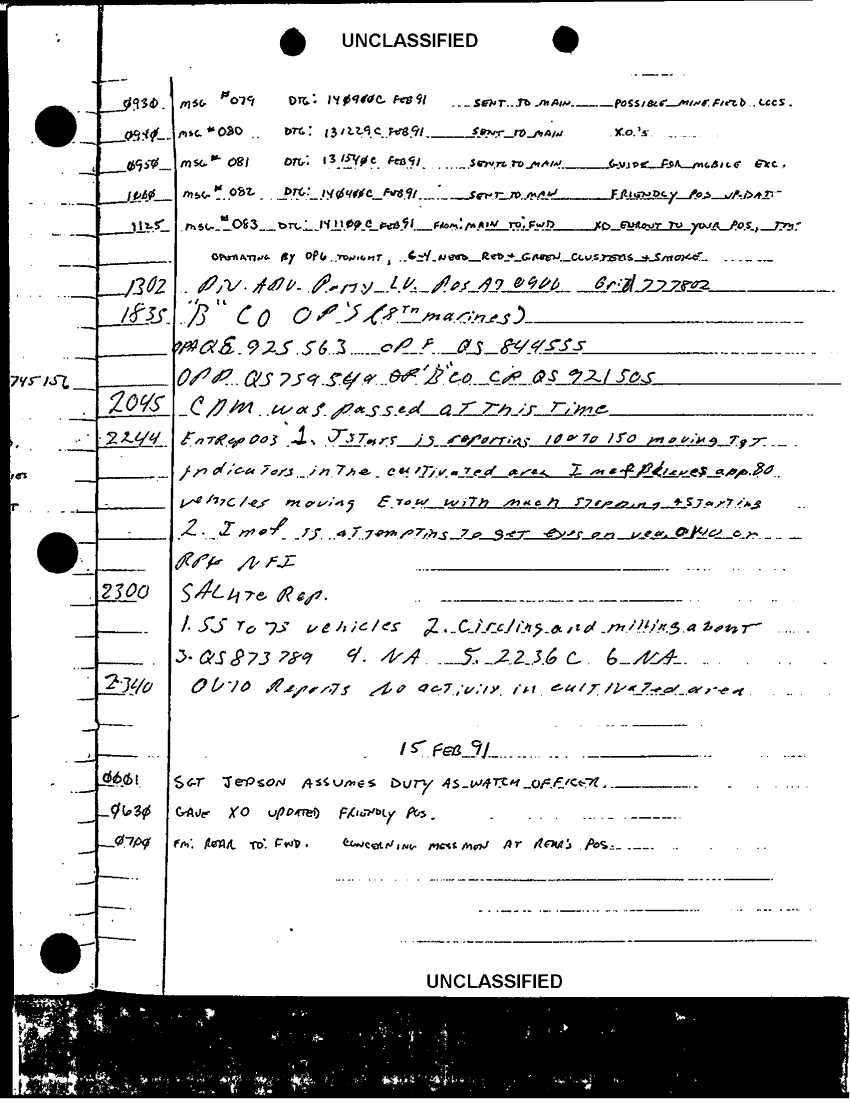 UNCLASSIFIED
0930 MSG #079 DTG: 140900C FEB 91 SENT TO MAIN POSSIBLE MINEFIELD LOCS.
0940 MSG #080 DTG: 131229C FEB 91 SENT TO MAIN X.O.'s
0950 MSG # 081 DTG: 131540C FEB 91 SENT TO MAIN GUIDE FOR MOBILE EXC.
1000 MSG # 082 DTG: 140400C FEB 91 SENT TO MAIN FRIENDLY POS UPDATE
1125 MSG #083 DTG: 141100C FEB 91 FROM: MAIN TO: FWD XO ENROUT TO YOUR POS,
OPERATING BY OP6 TONIGHT, NEED RED + GREEN CLUSTERS + SMOKE
1302 Div. ADV. Party LV. Pos AT 0900 Grid 777802
1835 "B" CO OP'S (8th marines)
925563 OP F QS 844555
745156 OP D QS 759 564 OP "B" CO CP QS 921505
2045 was passed at This Time
2244 EntRep003 1. JSTars is reporting 100 to 150 moving TgT
indicators in the cultivated area I mef Believes app. 80
vehicles moving with much stopping + starting
2. I mef is attempting to get eyes on
NFI
2300 SALUTE Rep.
1. 55 to 75 vehicles 2. Circling and milling about
3. QS873789 4. NA 5. 2236C 6 NA
2340 OV10 Reports No activity in cultivated area
15 FEB 91
0001 SGT JEPSON ASSUMES DUTY AS WATCH OFFICER.
0630 GAVE XO UPDATED FRIENDLY POS.
0700 FM: REAR TO: FWD. CONCERNING MESSMEN AT REAR'S POS.
UNCLASSIFIED